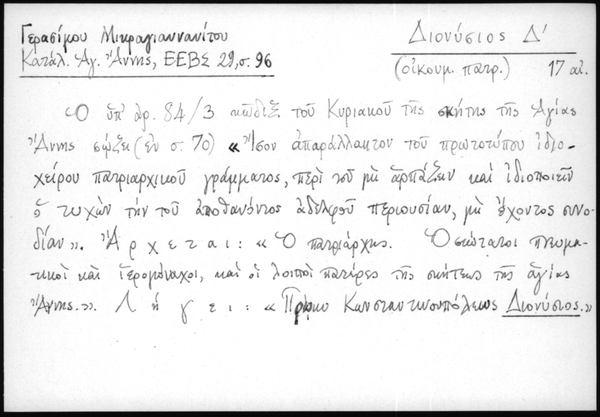 Γερασίμου Μικραγιαννανίτου
Διονύσιος Δ'
Κατάλ. Ἁγ. Ἄννης, ΕΕΒΣ 29, σ. 96
(οἰκουμ. πατρ.) 17 αἰ.
Ὁ ὑπ' ἀρ. 84/3 κῶδιξ τοῦ Κυριακοῦ τῆς σκήτης τῆς Ἁγίας
Ἄννης σῴζει (ἐν σ. 70) «Ἴσον ἀπαράλλακτον τοῦ πρωτοτύπου ἰδιο-
χείρου πατριαρχικοῦ γράμματος, περὶ τοῦ μὴ ἁρπάζειν καὶ ἰδιοποιεῖν
ὁ τυχὼν τὴν τοῦ ἀποθανόντος ἀδελφοῦ περιουσίαν, μὴ ἔχοντος συνο-
δίαν». Ἄρχεται: «Ὁ πατριάρχης. Ὁσιώτατοι πνευμα-
τικοὶ καὶ ἱερομόναχοι, καὶ οἱ λοιποὶ πατέρες τῆς σκήτεως τῆς ἁγίας
Ἄννης.». Λήγει: «Πρώην Κωνσταντινουπόλεως Διονύσιος.»